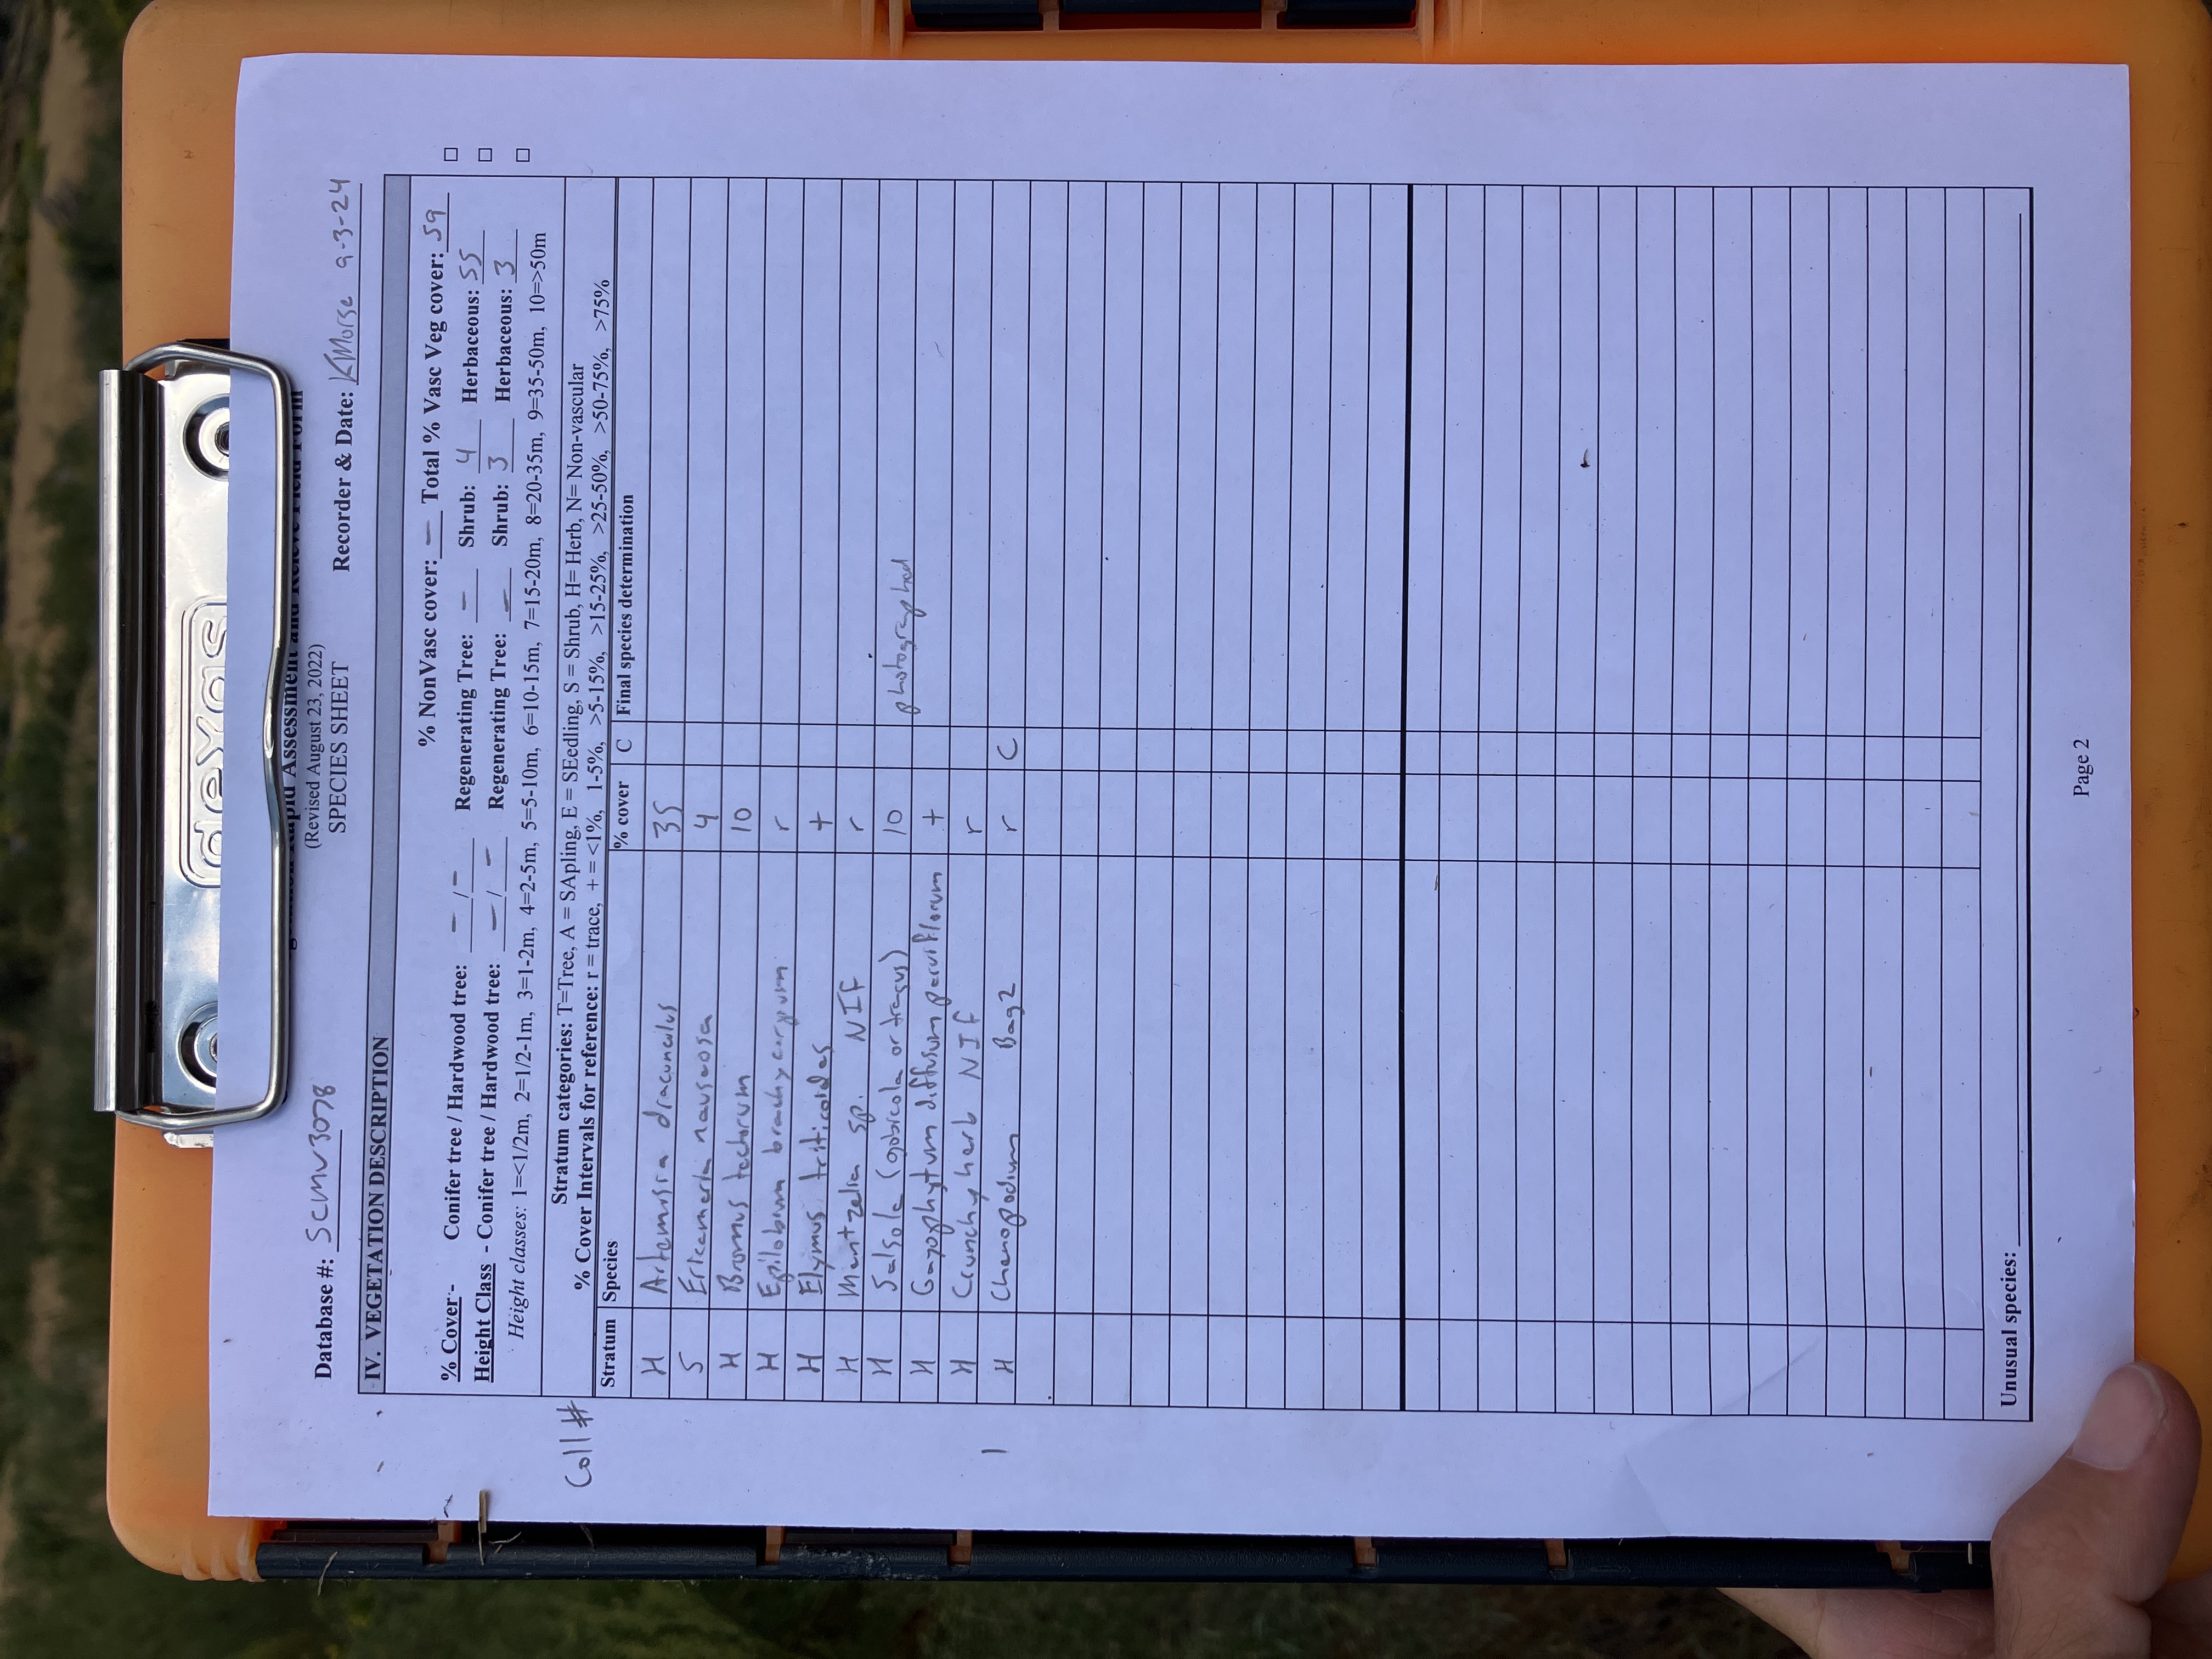 dexas
Rapid Assessment and Relevé Field Form
(Revised August 23, 2022)
SPECIES SHEET
Database #: SCMNV3078 Recorder & Date: KMorse 9-3-24
IV. VEGETATION DESCRIPTION
% NonVasc cover: — Total % Vasc Veg cover: 59
% Cover - Conifer tree / Hardwood tree: — / — Regenerating Tree: — Shrub: 4 Herbaceous: 55
Height Class - Conifer tree / Hardwood tree: — / — Regenerating Tree: — Shrub: 3 Herbaceous: 3
Height classes: 1=<1/2m, 2=1/2-1m, 3=1-2m, 4=2-5m, 5=5-10m, 6=10-15m, 7=15-20m, 8=20-35m, 9=35-50m, 10=>50m
Stratum categories: T=Tree, A = SApling, E = SEedling, S = Shrub, H= Herb, N= Non-vascular
% Cover Intervals for reference: r = trace, + = <1%, 1-5%, >5-15%, >15-25%, >25-50%, >50-75%, >75%
Coll #
Stratum Species % cover C Final species determination
H Artemisia dracunculus 35
S Ericameria nauseosa 4
H Bromus tectorum 10
H Epilobium brachycarpum r
H Elymus triticoides +
H Mentzelia sp. NIF r
H Salsola (gobicola or tragus) 10 photographed
H Gayophytum diffusum parviflorum +
H Crunchy herb NIF r
1 H Chenopodium Bag 2 r C
Unusual species:
Page 2